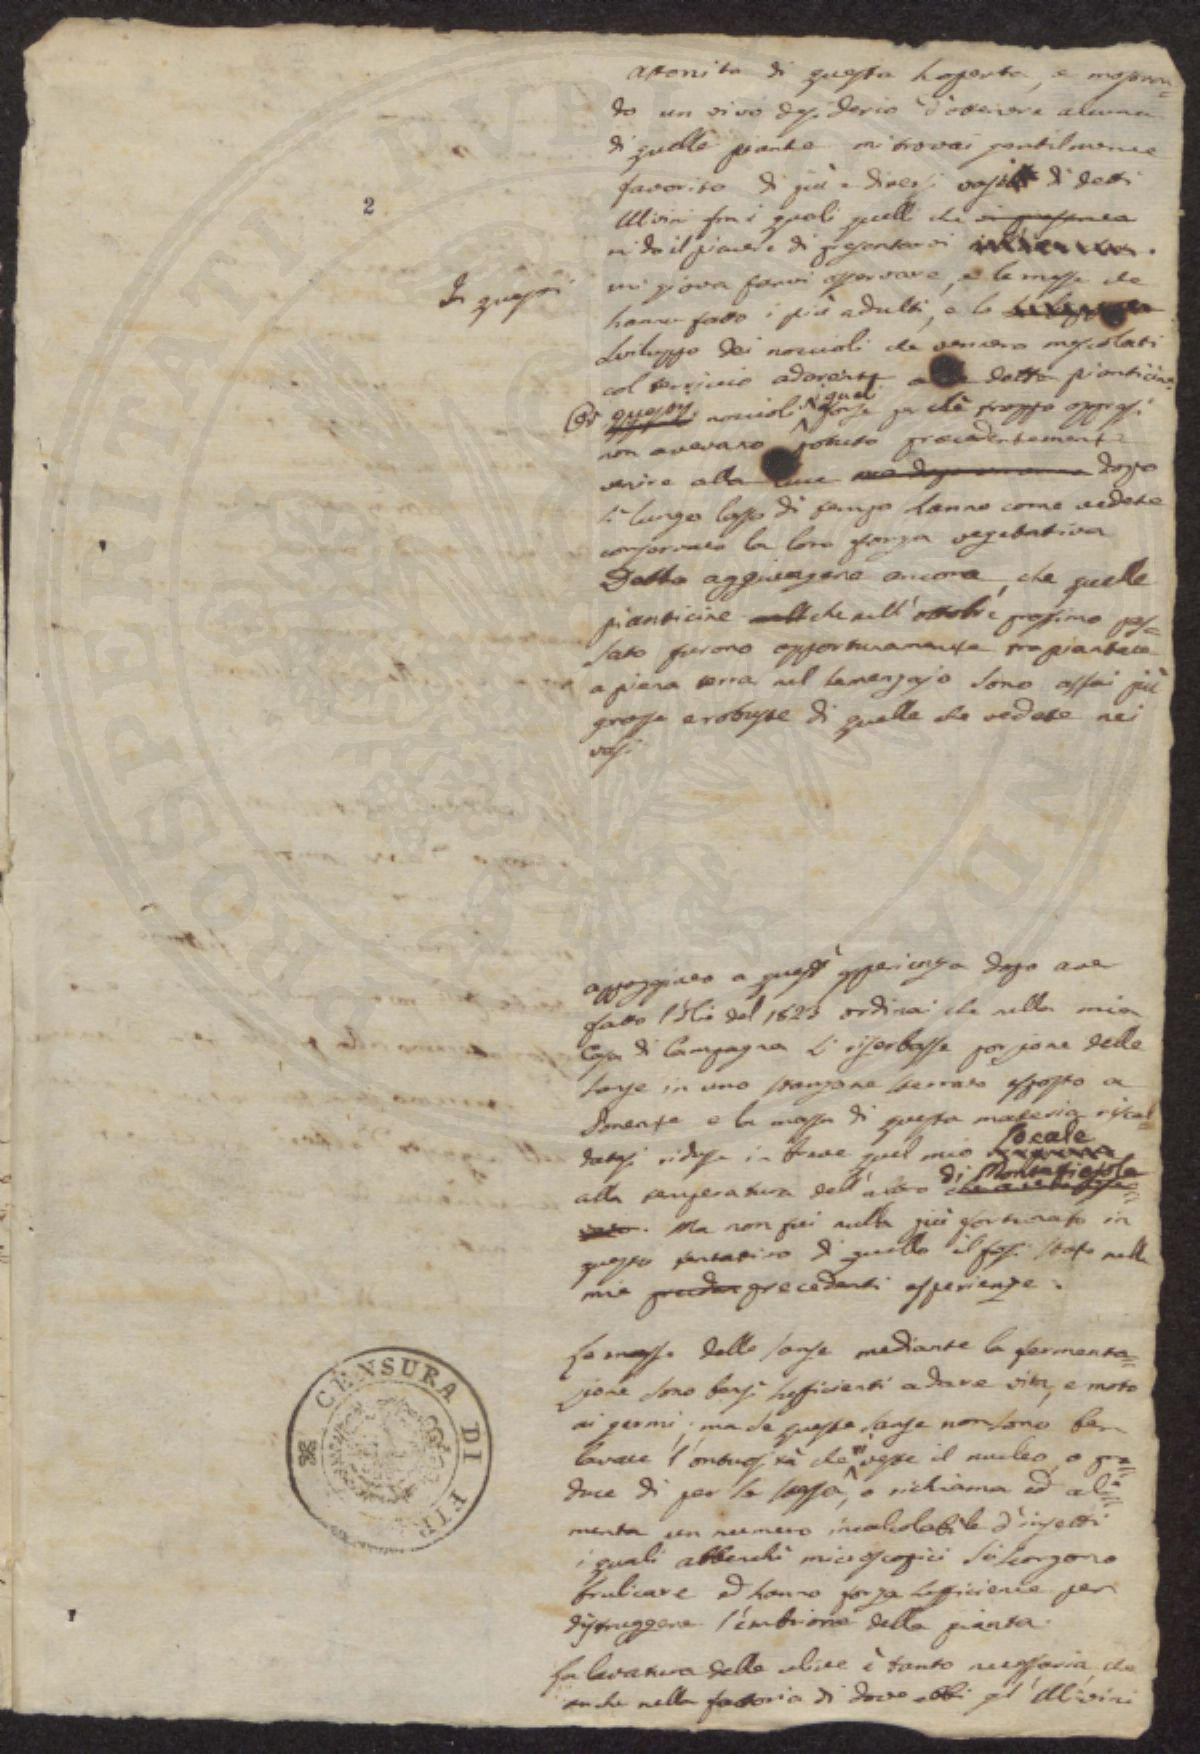 2
attonito di questa scoperta, e mostran=
do un vivo desiderio d'ottenere alcuna
di quelle piante mi trovai gentilmente
favorito di più e diversi vasi di detti
Ulivini fra i quali quelli che
vi do il piacere di presentarvi
Di questi
mi giova farvi osservare, e le messe che
hanno fatto i più adulti, e lo
sviluppo dei noccioli che vennero mescolati
col terriccio aderente a dette pianticine
questi noccioli i quali forse perchè troppo oppressi
non avevano potuto precedentemente
venire alla luce dopo
sì lungo lasso di tempo hanno come vedete
conservato la loro forza vegetativa
Debbo aggiungere ancora, che quelle
pianticine che nell'ottobre prossimo pas=
sato furono opportunamente trapiantate
a piena terra nel semenzajo sono assai più
grosse e robuste di quelle che vedete nei
vasi
appoggiato a questa esperienza dopo aver
fatto l'Olio del 1823 ordinai che nella mia
Casa di Campagna si riserbasse porzione delle
sanse in uno stanzone serrato esposto a
Ponente e la massa di questa materia riscal=
datasi ridusse in breve quel mio Locale
alla temperatura dell'altro di Montefiesole
Ma non fui nulla più fortunato in
questo tentativo di quello il fossi stato nelle
mie precedenti esperienze.
Le masse delle sanse mediante la fermenta=
zione sono bensì sufficienti a dare vita, e moto
ai germi; ma se queste sanse non sono ben
lavate l'ontuosità che veste il nucleo, o pro=
duce di per se stessa, o richiama ed ali=
menta un numero incalcolabile d'insetti
i quali abbenchè microscopici si scorgono
brulicare ed hanno forza sufficiente per
distruggere l'embrione della pianta.
La lavatura delle ulive è tanto necessaria, che
anche nella fattoria di dove ebbi gl'Ulivini
CENSURA DI FIR